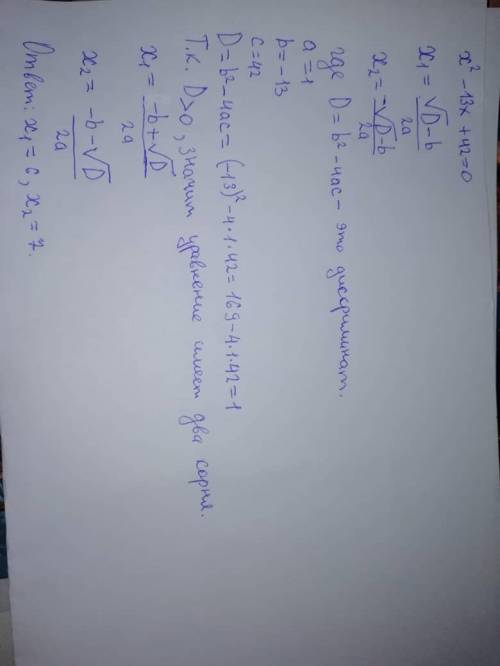 x² - 13x + 42 = 0
x₁ = (√D - b) / 2a
x₂ = (-√D - b) / 2a
где D = b² - 4ac - это дискриминат.
a = 1
b = -13
c = 42
D = b² - 4ac = (-13)² - 4·1·42 = 169 - 4·1·42 = 1
Т.к. D>0, значит уравнение имеет два корня.
x₁ = (-b + √D) / 2a
x₂ = (-b - √D) / 2a
Ответ: x₁ = 6, x₂ = 7.